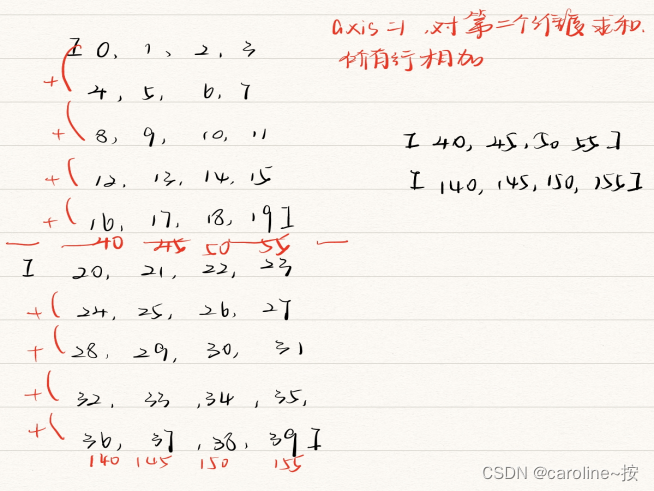 axis=1, 对第二个维度求和.
所有行相加
[ 0, 1, 2, 3
+( 4, 5, 6, 7
+( 8, 9, 10, 11
+( 12, 13, 14, 15
+( 16, 17, 18, 19]
40 45 50 55
[ 20, 21, 22, 23
+( 24, 25, 26, 27
+( 28, 29, 30, 31
+( 32, 33, 34, 35,
+( 36, 37, 38, 39]
140 145 150 155
[ 40, 45, 50 55]
[ 140, 145, 150, 155]
CSDN @caroline~按